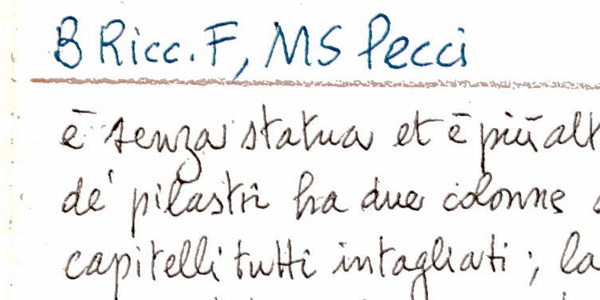 B Ricc. F, MS Pecci
è senza statua et è più alt
de' pilastri ha due colonne
capitelli tutti intagliati ; la